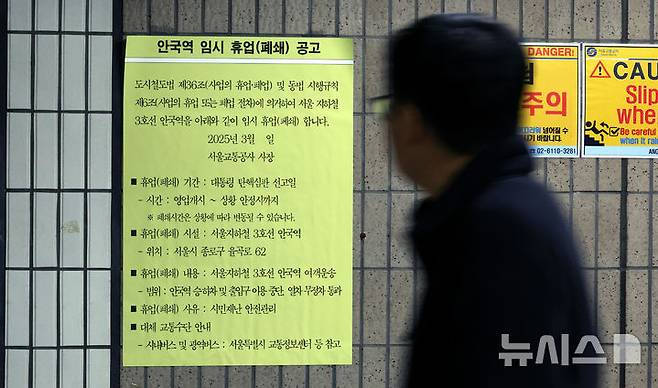 안국역 임시 휴업(폐쇄) 공고
도시철도법 제36조(사업의 휴업·폐업) 및 동법 시행규칙
제6조(사업의 휴업 또는 폐업 절차)에 의거하여 서울 지하철
3호선 안국역을 아래와 같이 임시 휴업(폐쇄) 합니다.
2025년 3월 일
서울교통공사 사장
■ 휴업(폐쇄) 기간 : 대통령 탄핵심판 선고일
- 시간 : 영업개시 ~ 상황 안정시까지
※ 폐쇄시간은 상황에 따라 변동될 수 있습니다.
■ 휴업(폐쇄) 시설 : 서울지하철 3호선 안국역
- 위치 : 서울시 종로구 율곡로 62
■ 휴업(폐쇄) 내용 : 서울지하철 3호선 안국역 여객운송
- 범위 : 안국역 승하차 및 출입구 이용 중단, 열차 무정차 통과
■ 휴업(폐쇄) 사유 : 시민재난 안전관리
■ 대체 교통수단 안내
- 시내버스 및 광역버스 : 서울특별시 교통정보센터 등 참고
DANGER!
주의
넘어질 수
바랍니다.
☎ 02-6110-3281
서울교통공사
CAU
Slip
whe
Be careful
when it rain
ANG
뉴시스